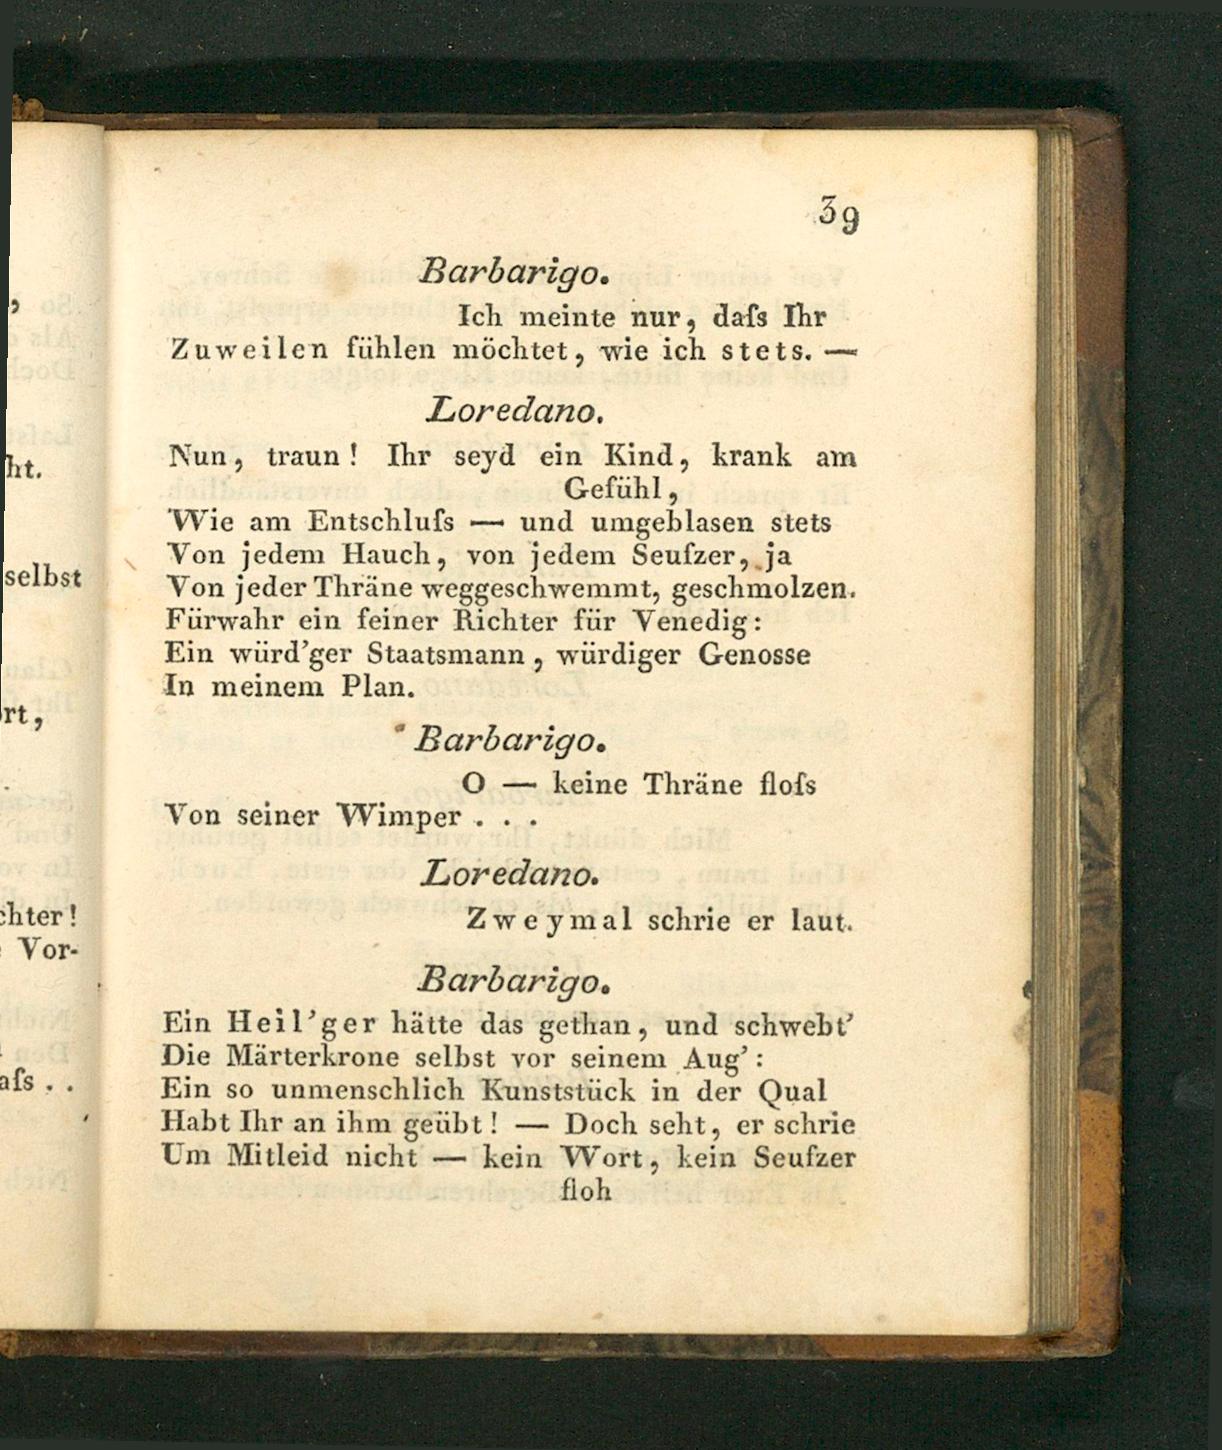 39
Barbarigo.
Ich meinte nur, daſs Ihr
Zuweilen fühlen möchtet, wie ich stets. —
Loredano.
Nun, traun! Ihr seyd ein Kind, krank am
Gefühl,
Wie am Entschluſs — und umgeblasen stets
Von jedem Hauch, von jedem Seufzer, ja
Von jeder Thräne weggeschwemmt, geschmolzen.
Fürwahr ein feiner Richter für Venedig:
Ein würd'ger Staatsmann, würdiger Genosse
In meinem Plan.
Barbarigo.
O — keine Thräne floſs
Von seiner Wimper . . .
Loredano.
Zweymal schrie er laut.
Barbarigo.
Ein Heil'ger hätte das gethan, und schwebt'
Die Märterkrone selbst vor seinem Aug':
Ein so unmenschlich Kunststück in der Qual
Habt Ihr an ihm geübt! — Doch seht, er schrie
Um Mitleid nicht — kein Wort, kein Seufzer
floh
,
ht.
selbst
ort,
chter!
Vor-
aſs . .